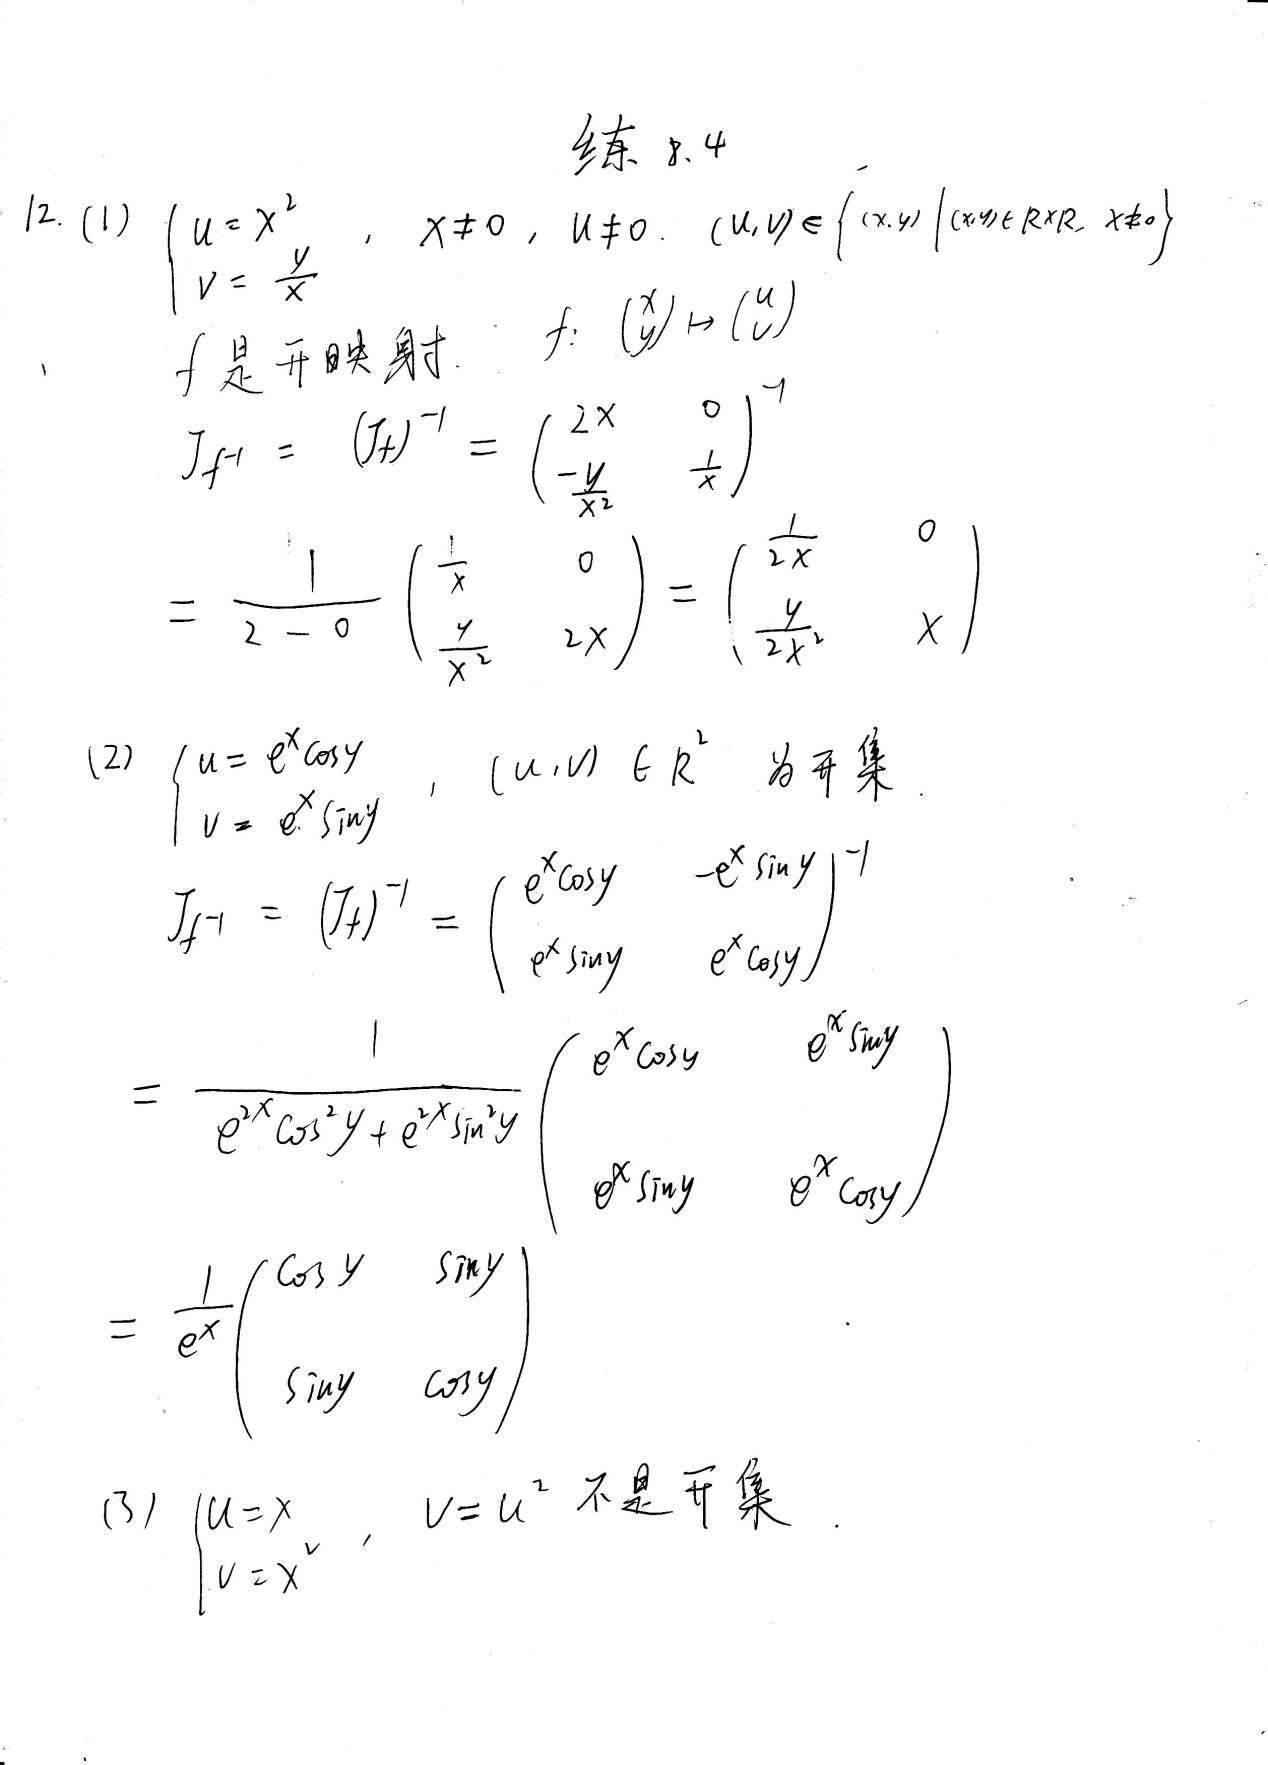 练 8.4
12. (1) { u = x² , v = y/x , x ≠ 0 , u ≠ 0. (u,v) ∈ { (x,y) | (x,y) ∈ R×R, x ≠ 0 }
f 是开映射. f: (x y) ↦ (u v)
J_{f⁻¹} = (J_f)⁻¹ = ( 2x 0 ; -y/x² 1/x )⁻¹
= 1/(2-0) ( 1/x 0 ; y/x² 2x ) = ( 1/2x 0 ; y/2x² x )
(2) { u = eˣ cosy , v = eˣ siny , (u,v) ∈ R² 为开集.
J_{f⁻¹} = (J_f)⁻¹ = ( eˣ cosy -eˣ siny ; eˣ siny eˣ cosy )⁻¹
= 1/(e²ˣ cos²y + e²ˣ sin²y) ( eˣ cosy eˣ siny ; eˣ siny eˣ cosy )
= 1/eˣ ( cosy siny ; siny cosy )
(3) { u = x , v = x² , v = u² 不是开集.